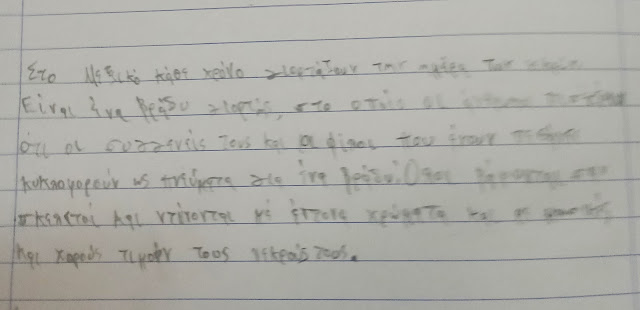 Στο Μεξικό κάθε χρόνο γιορτάζουν την ημέρα των
Είναι ένα βράδυ γιορτής, στο οποίο οι
ότι οι συγγενείς τους και οι φίλοι που έχουν
κυκλοφορούν ως πνεύματα για ένα βράδυ. Όλοι
και ντύνονται με έντονα χρώματα και
και χορούς τιμούν τους νεκρούς τους.